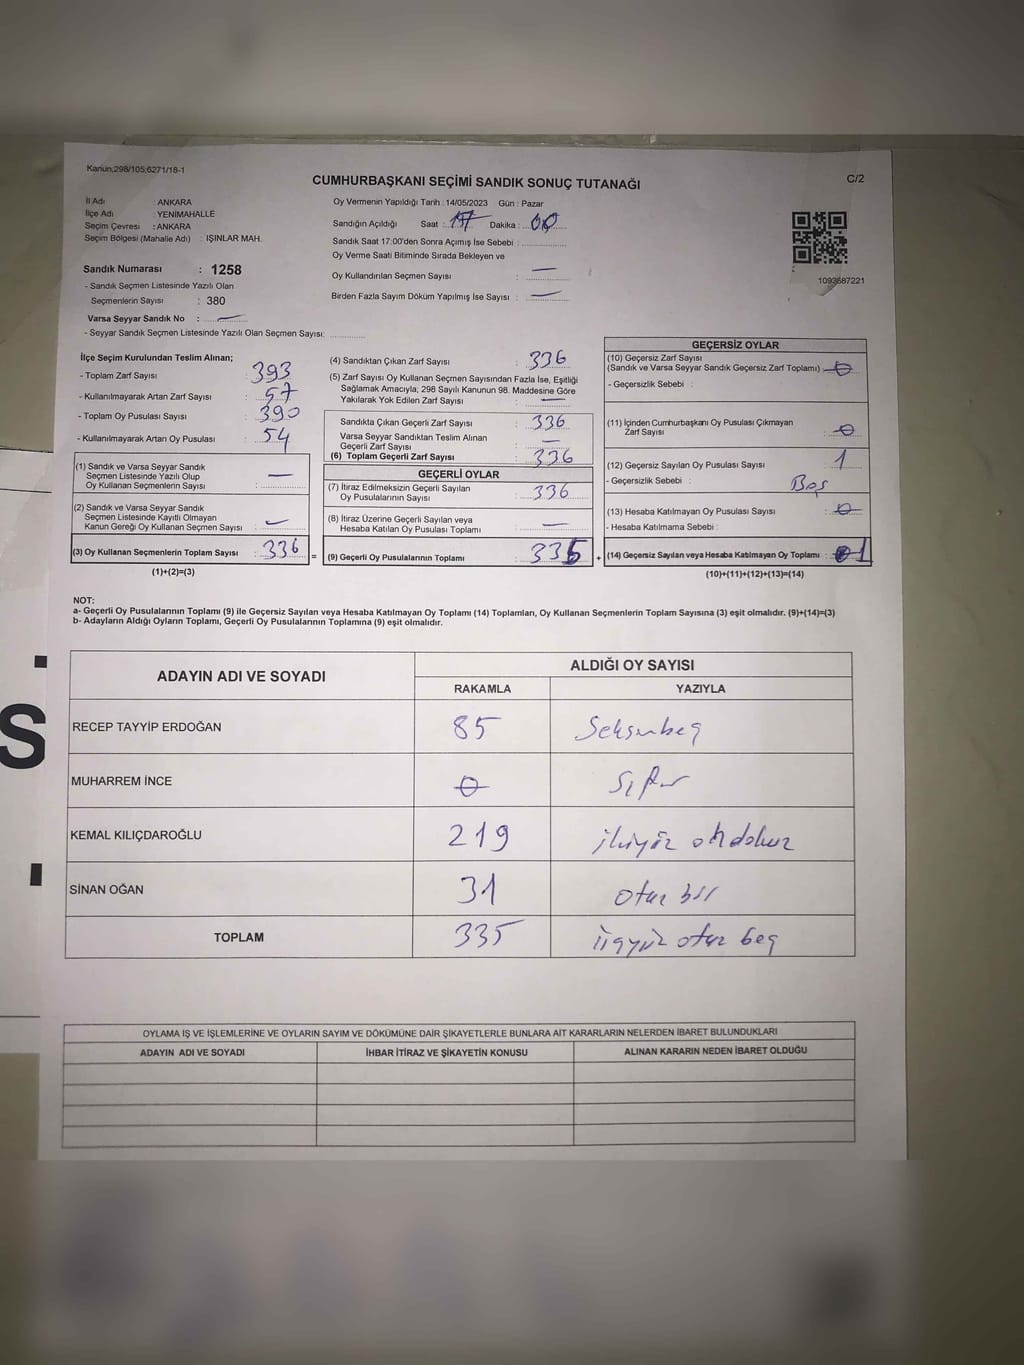 Kanun;298/105;6271/18-1
C/2
CUMHURBAŞKANI SEÇİMİ SANDIK SONUÇ TUTANAĞI
İl Adı : ANKARA
İlçe Adı : YENİMAHALLE
Seçim Çevresi : ANKARA
Seçim Bölgesi (Mahalle Adı) : IŞINLAR MAH.
Sandık Numarası : 1258
- Sandık Seçmen Listesinde Yazılı Olan
Seçmenlerin Sayısı : 380
Varsa Seyyar Sandık No : —
- Seyyar Sandık Seçmen Listesinde Yazılı Olan Seçmen Sayısı:
Oy Vermenin Yapıldığı Tarih : 14/05/2023 Gün : Pazar
Sandığın Açıldığı Saat : 17 Dakika : 00
Sandık Saat 17:00'den Sonra Açımış İse Sebebi :
Oy Verme Saati Bitiminde Sırada Bekleyen ve
Oy Kullandırılan Seçmen Sayısı : —
Birden Fazla Sayım Döküm Yapılmış İse Sayısı : —
1093687221
İlçe Seçim Kurulundan Teslim Alınan;
- Toplam Zarf Sayısı : 393
- Kullanılmayarak Artan Zarf Sayısı : 57
- Toplam Oy Pusulası Sayısı : 390
- Kullanılmayarak Artan Oy Pusulası : 54
(1) Sandık ve Varsa Seyyar Sandık
Seçmen Listesinde Yazılı Olup
Oy Kullanan Seçmenlerin Sayısı : —
(2) Sandık ve Varsa Seyyar Sandık
Seçmen Listesinde Kayıtlı Olmayan
Kanun Gereği Oy Kullanan Seçmen Sayısı : —
(3) Oy Kullanan Seçmenlerin Toplam Sayısı : 336 =
(1)+(2)=(3)
(4) Sandıktan Çıkan Zarf Sayısı : 336
(5) Zarf Sayısı Oy Kullanan Seçmen Sayısından Fazla İse, Eşitliği
Sağlamak Amacıyla; 298 Sayılı Kanunun 98. Maddesine Göre
Yakılarak Yok Edilen Zarf Sayısı : —
Sandıkta Çıkan Geçerli Zarf Sayısı : 336
Varsa Seyyar Sandıktan Teslim Alınan
Geçerli Zarf Sayısı : —
(6) Toplam Geçerli Zarf Sayısı : 336
GEÇERLİ OYLAR
(7) İtiraz Edilmeksizin Geçerli Sayılan
Oy Pusulalarının Sayısı : 336
(8) İtiraz Üzerine Geçerli Sayılan veya
Hesaba Katılan Oy Pusulası Toplamı : —
(9) Geçerli Oy Pusulalarının Toplamı : 335 +
GEÇERSİZ OYLAR
(10) Geçersiz Zarf Sayısı
(Sandık ve Varsa Seyyar Sandık Geçersiz Zarf Toplamı) : 0
- Geçersizlik Sebebi :
(11) İçinden Cumhurbaşkanı Oy Pusulası Çıkmayan
Zarf Sayısı : 0
(12) Geçersiz Sayılan Oy Pusulası Sayısı : 1
- Geçersizlik Sebebi : Boş
(13) Hesaba Katılmayan Oy Pusulası Sayısı : 0
- Hesaba Katılmama Sebebi :
(14) Geçersiz Sayılan veya Hesaba Katılmayan Oy Toplamı : 01
(10)+(11)+(12)+(13)=(14)
NOT:
a- Geçerli Oy Pusulalarının Toplamı (9) ile Geçersiz Sayılan veya Hesaba Katılmayan Oy Toplamı (14) Toplamları, Oy Kullanan Seçmenlerin Toplam Sayısına (3) eşit olmalıdır. (9)+(14)=(3)
b- Adayların Aldığı Oyların Toplamı, Geçerli Oy Pusulalarının Toplamına (9) eşit olmalıdır.
ADAYIN ADI VE SOYADI ALDIĞI OY SAYISI
RAKAMLA YAZIYLA
RECEP TAYYİP ERDOĞAN 85 Seksenbeş
MUHARREM İNCE 0 Sıfır
KEMAL KILIÇDAROĞLU 219 ikiyüz ondokuz
SİNAN OĞAN 31 otuz bir
TOPLAM 335 üçyüz otuz beş
OYLAMA İŞ VE İŞLEMLERİNE VE OYLARIN SAYIM VE DÖKÜMÜNE DAİR ŞİKAYETLERLE BUNLARA AİT KARARLARIN NELERDEN İBARET BULUNDUKLARI
ADAYIN ADI VE SOYADI İHBAR İTİRAZ VE ŞİKAYETİN KONUSU ALINAN KARARIN NEDEN İBARET OLDUĞU
S